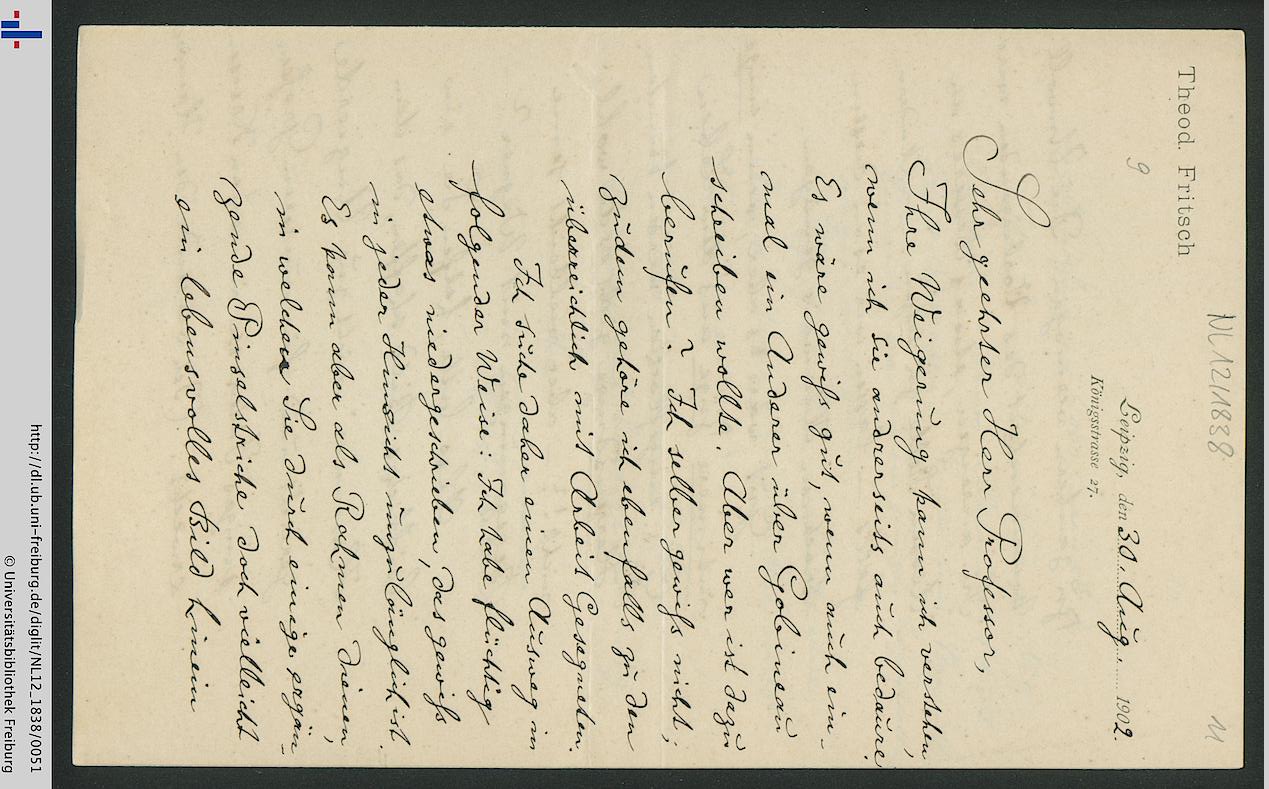 NL 12/1838
11
Theod. Fritsch
Leipzig, den 30. Aug. 1902.
Königsstrasse 27.
9
Sehr geehrter Herr Professor,
Ihre Weigerung kann ich verstehen,
wenn ich sie andrerseits auch bedaure.
Es wäre gewiß gut, wenn auch ein-
mal ein Anderer über Gobineau
schreiben wollte. Aber wer ist dazu
berufen? Ich selber gewiß nicht;
zudem gehöre ich ebenfalls zu den
überreichlich mit Arbeit Gesegneten.
Ich suche daher einen Ausweg in
folgender Weise: Ich habe flüchtig
etwas niedergeschrieben, das gewiß
in jeder Hinsicht unzulänglich ist.
Es kann aber als Rahmen dienen,
in welchen Sie durch einige ergän-
zende Pinselstriche doch vielleicht
ein lebensvolles Bild hinein
http://dl.ub.uni-freiburg.de/diglit/NL12_1838/0051
© Universitätsbibliothek Freiburg